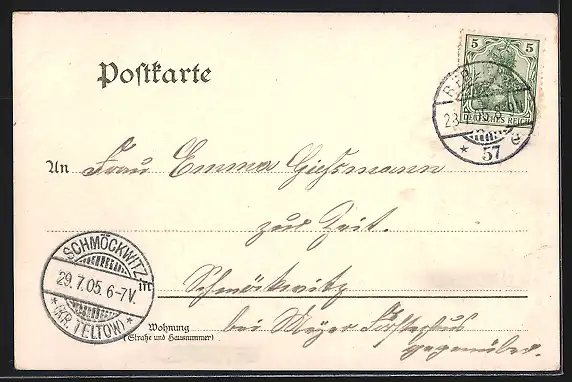 5 5
DEUTSCHES REICH
BERLIN
57
Postkarte
An Frau Emma Giessmann
zur Zeit.
SCHMÖCKWITZ
29.7.05. 6-7V.
* (KR. TELTOW) *
in Schmöckwitz
Wohnung
(Straße und Hausnummer)
bei Meyer Försterhaus
gegenüber.